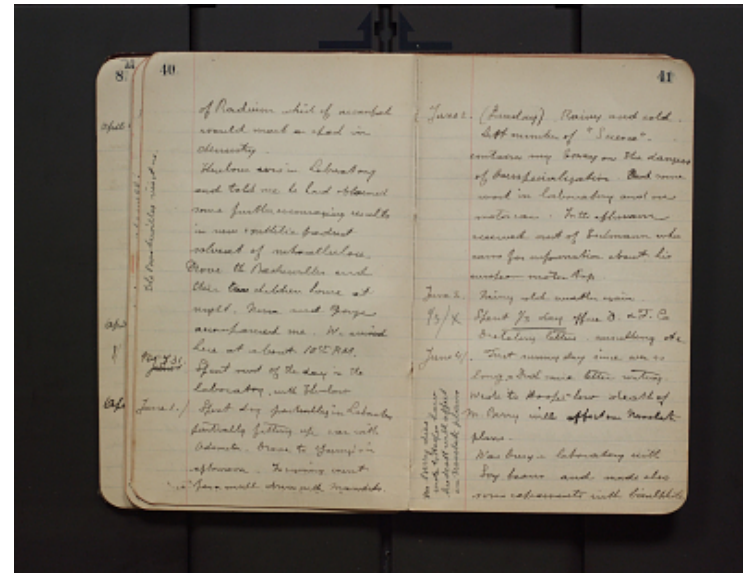 8
40
of Radium which if
would mark a epoch in
chemistry.
Thurlow was in Laboratory
and told me he had obtained
some further encouraging results
in new synthetic product
solvent of nitrocellulose.
Drove the Baskervilles and
their two children home at
night. Nina and George
accompanied me. We arrived
here at about 10:00 P.M.
May 31.
Spent most of the day in the
laboratory, with Thurlow
June 1./ Spent day partially in Laboratory
partially fitting up car with
Odometer. Drove to in
afternoon. In evening went
for a small drive with
41
June 2. (Tuesday). Rainy and cold.
number of "Science"
contains my Essay on the danger
of overspecialization. Did some
work in laboratory and on
motorcar. In the afternoon
received visit of who
came for information about his
european motor trip.
June 3. Rainy cold weather again.
1/3/X Spent 1/3 day office D. & F. Co
Dictating letters, consulting etc
June 4/. First sunny day since so
long. Did some letter writing.
Wrote to how death of
M. Perry will affect our Nonskid
plans.
Was busy in laboratory with
Soy beans and made also
some experiments with
Mr Perry dies
death will affect
our Nonskid plans
April